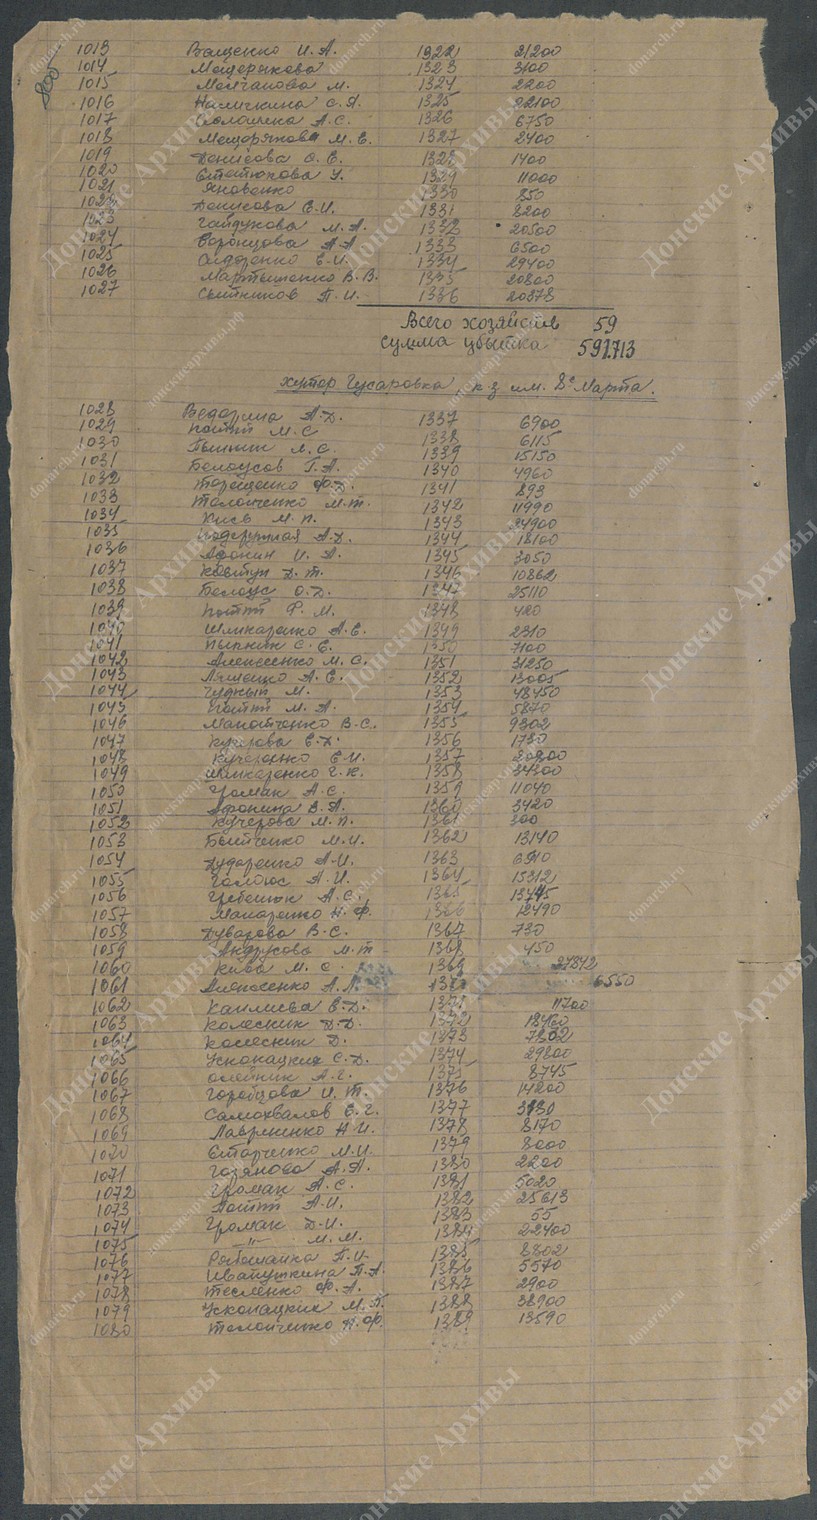 805
1013 Ващенко И. А. 1322 21200
1014 Мещерякова 1323 3100
1015 Молчанова М. 1324 2200
1016 Наличкина С. Я. 1325 22100
1017 Солошина А. С. 1326 6750
1018 Мещерякова М. Е. 1327 2400
1019 Денисова О. Е. 1328 1400
1020 Статюхова У. 1329 11000
1021 Яновенко 1330 850
1022 Денисова Е. И. 1331 8200
1023 Гайдукова М. А. 1332 20500
1024 Воронцова А. А. 1333 6500
1025 Сидоренко Е. И. 1334 29400
1026 Мартыненко В. В. 1335 20800
1027 Сытников П. И. 1336 20378
Всего хозяйств 59
Сумма убытка 591.713
хутор Гусаровка, к-з им. 8е Марта.
1028 А. Д. 1337 6900
1029 Коттт М. С. 1338 6115
1030 Пыпкин А. С. 1339 15150
1031 Белоусов Г. А. 1340 4960
1032 Терещенко Ф. Д. 1341 893
1033 Толоиченко М. Т. 1342 11990
1034 Кись М. П. 1343 24900
1035 А. Д. 1344 18100
1036 Афонин И. А. 1345 3050
1037 Ковтун Д. Т. 1346 10862
1038 Белоус О. Д. 1347 25110
1039 Коттт Ф. М. 1348 420
1040 Шинкаренко А. Е. 1349 2310
1041 Пыпкин С. Е. 1350 7100
1042 Алексеенко М. С. 1351 31250
1043 Ляшенко А. Е. 1352 13005
1044 Чудный М. 1353 48450
1045 Коттт М. А. 1354 5870
1046 В. С. 1355 9302
1047 Е. Д. 1356 1730
1048 Кучеренко Е. И. 1357 20800
1049 Шинкаренко Г. К. 1358 34300
1050 Громак А. С. 1359 11040
1051 Афонина В. А. 1360 3420
1052 Кучерова М. П. 1361 300
1053 Бойченко М. И. 1362 13140
1054 Дударенко А. И. 1363 6910
1055 Галоюс А. И. 1364 15312
1056 Гребенюк А. С. 1365 13445
1057 Макаренко Н. Ф. 1366 12490
1058 Дуварова В. С. 1367 730
1059 Андрусова М. Т. 1368 450
1060 Кива М. С. 1369 27812
1061 Алексеенко А. Л. 1370 6550
1062 Каплиева Е. Д. 1371 11700
1063 Колесник Д. Д. 1372 18460
1064 Колесник Д. 1373 7802
1065 Усконацких С. Д. 1374 29800
1066 Олейник А. Г. 1375 8745
1067 И. Т. 1376 14200
1068 Самохвалов Е. Г. 1377 3980
1069 Лавриненко Н. И. 1378 8170
1070 Старченко М. И. 1379 8000
1071 А. А. 1380 2200
1072 Громак А. С. 1381 5020
1073 Коттт А. И. 1382 25613
1074 Громак Д. И. 1383 55
1075 —"— М. М. 1384 22400
1076 П. И. 1385 8802
1077 Ивануткина П. А. 1386 5570
1078 Тесленко Ф. А. 1387 2900
1079 Усконацких М. П. 1388 38900
1080 Толоиченко Н. Ф. 1389 13590